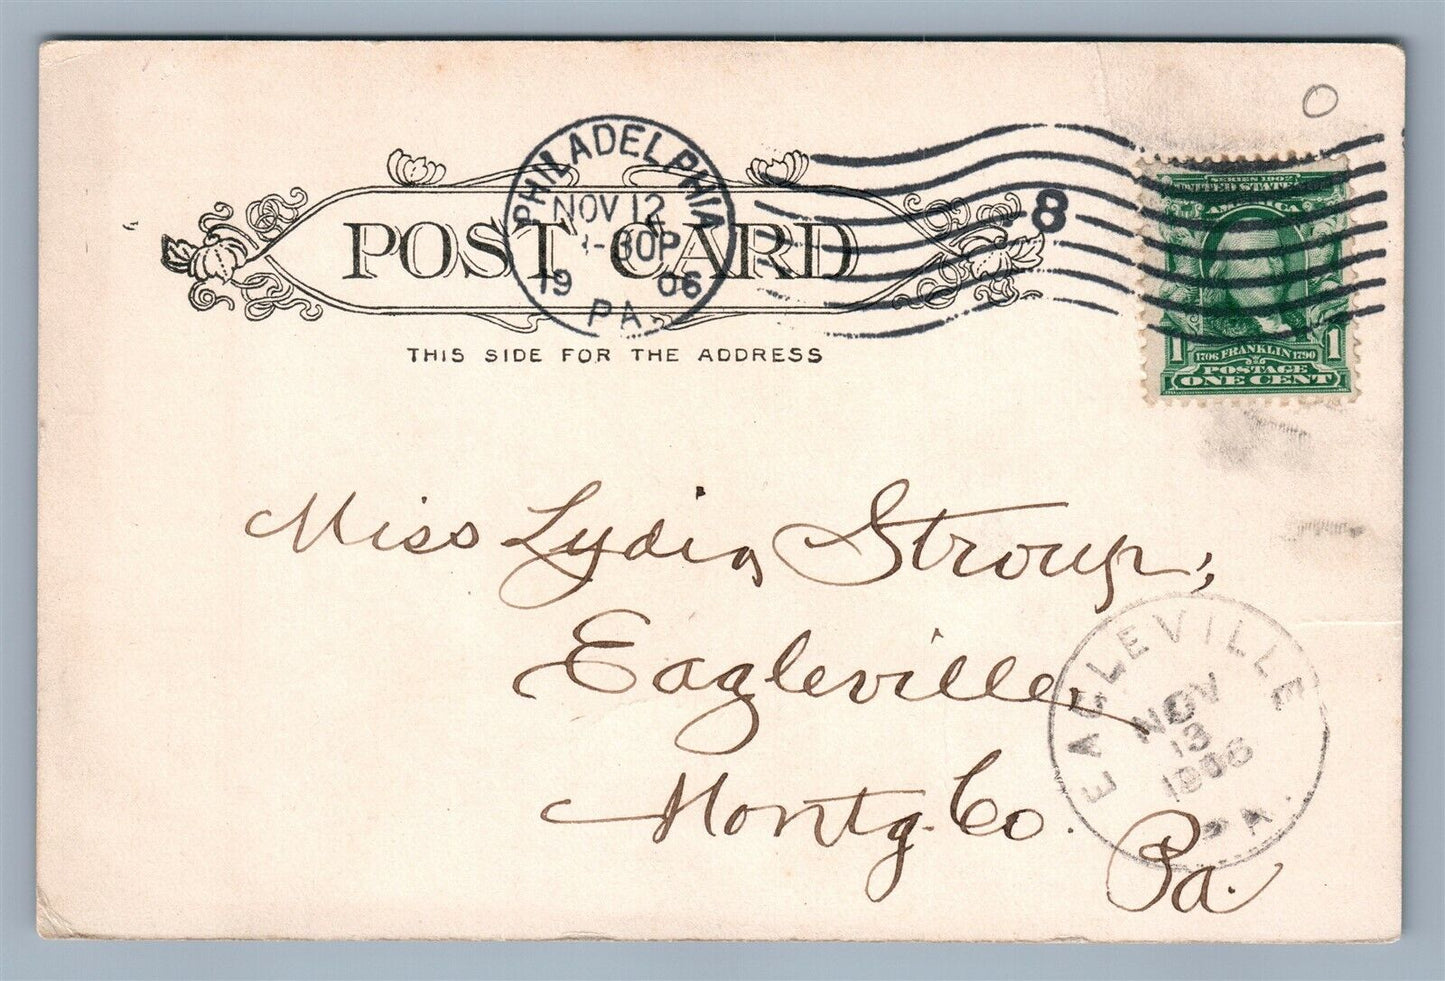 PHILADELPHIA
NOV 12
-30P
19 06
PA.
8
POST CARD
THIS SIDE FOR THE ADDRESS
SERIES 1902
UNITED STATES
AMERICA
1 1706 FRANKLIN 1790 1
POSTAGE
ONE CENT
Miss Lydia Stroup,
Eagleville,
Montg. Co.
Pa.
EAGLEVILLE
NOV
13
1906
PA.